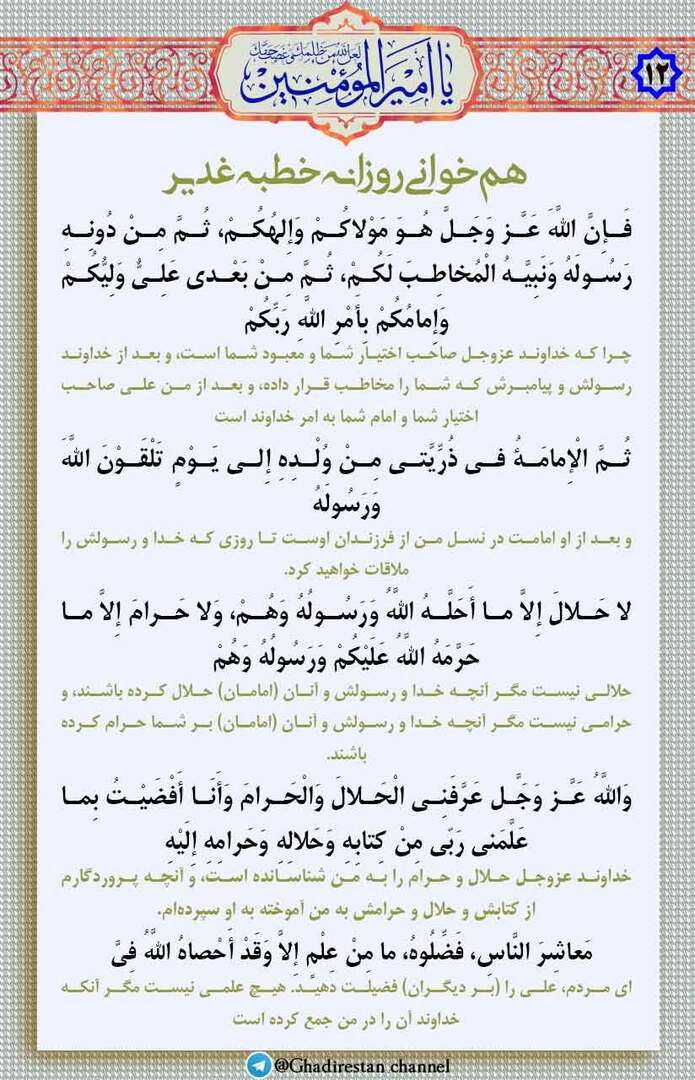 لعن الله من ظلمك و غصب حقك
یا امیرالمؤمنین
۱۲
هم‌خوانی روزانه خطبه غدیر
فَإِنَّ اللَّهَ عَزَّ وَجَلَّ هُوَ مَوْلاكُمْ وَإِلهُكُمْ، ثُمَّ مِنْ دُونِهِ
رَسُولُهُ وَنَبِيُّهُ الْمُخاطِبَ لَكُمْ، ثُمَّ مِنْ بَعْدى عَلِىٌّ وَلِيُّكُمْ
وَإِمامُكُمْ بِأَمْرِ اللَّهِ رَبِّكُمْ
چرا که خداوند عزوجل صاحب اختیار شما و معبود شما است، و بعد از خداوند
رسولش و پیامبرش که شما را مخاطب قرار داده، و بعد از من علی صاحب
اختیار شما و امام شما به امر خداوند است
ثُمَّ الْإِمامَةُ فى ذُرِّيَّتى مِنْ وُلْدِهِ إِلى يَوْمٍ تَلْقَوْنَ اللَّهَ
وَرَسُولَهُ
و بعد از او امامت در نسل من از فرزندان اوست تا روزی که خدا و رسولش را
ملاقات خواهید کرد.
لا حَلالَ إِلاَّ ما أَحَلَّهُ اللَّهُ وَرَسُولُهُ وَهُمْ، وَلا حَرامَ إِلاَّ ما
حَرَّمَهُ اللَّهُ عَلَيْكُمْ وَرَسُولُهُ وَهُمْ
حلالی نیست مگر آنچه خدا و رسولش و آنان (امامان) حلال کرده باشند، و
حرامی نیست مگر آنچه خدا و رسولش و آنان (امامان) بر شما حرام کرده
باشند.
وَاللَّهُ عَزَّ وَجَّل عَرَّفَنِى الْحَلالَ وَالْحَرامَ وَأَنَا أَفْضَيْتُ بِما
عَلَّمَنى رَبّى مِنْ كِتابِهِ وَحَلالِهِ وَحَرامِهِ إِلَيْهِ
خداوند عزوجل حلال و حرام را به من شناسانده است، و آنچه پروردگارم
از کتابش و حلال و حرامش به من آموخته به او سپرده‌ام.
مَعاشِرَ النَّاسِ، فَضِّلُوهُ، ما مِنْ عِلْمٍ إِلاَّ وَقَدْ أَحْصاهُ اللَّهُ فِىَّ
ای مردم، علی را (بر دیگران) فضیلت دهید. هیچ علمی نیست مگر آنکه
خداوند آن را در من جمع کرده است
@Ghadirestan channel